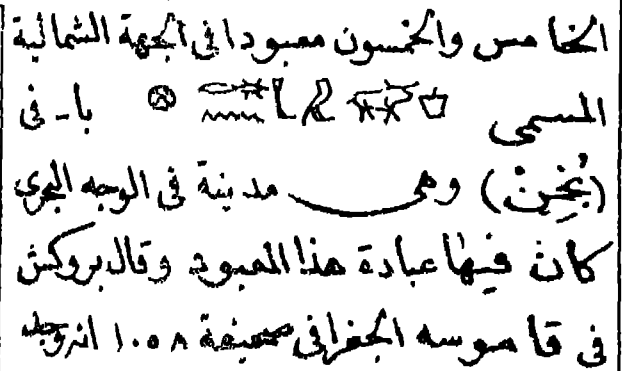 الخامس والخمسون معبودا فى الجهة الشمالية
المسمى با - فى
(بُخِنْ) وهى مدينة فى الوجه البحرى
كانت فيها عبادة هذا المعبود وقال بروكش
فى قاموسه الجغرافى صحيفة ١٠٥٨ انه وجد